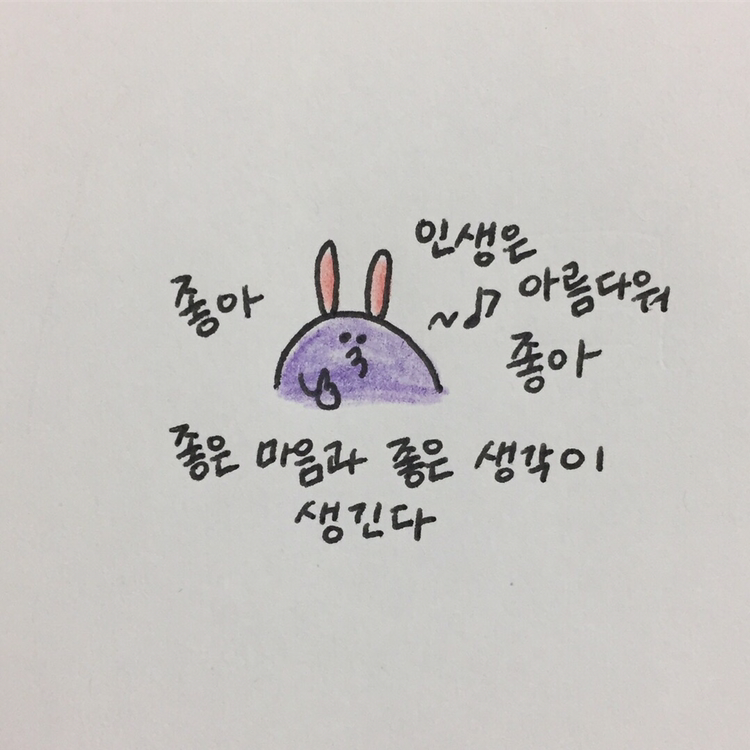 좋아
인생은
아름다워
좋아
좋은 마음과 좋은 생각이
생긴다